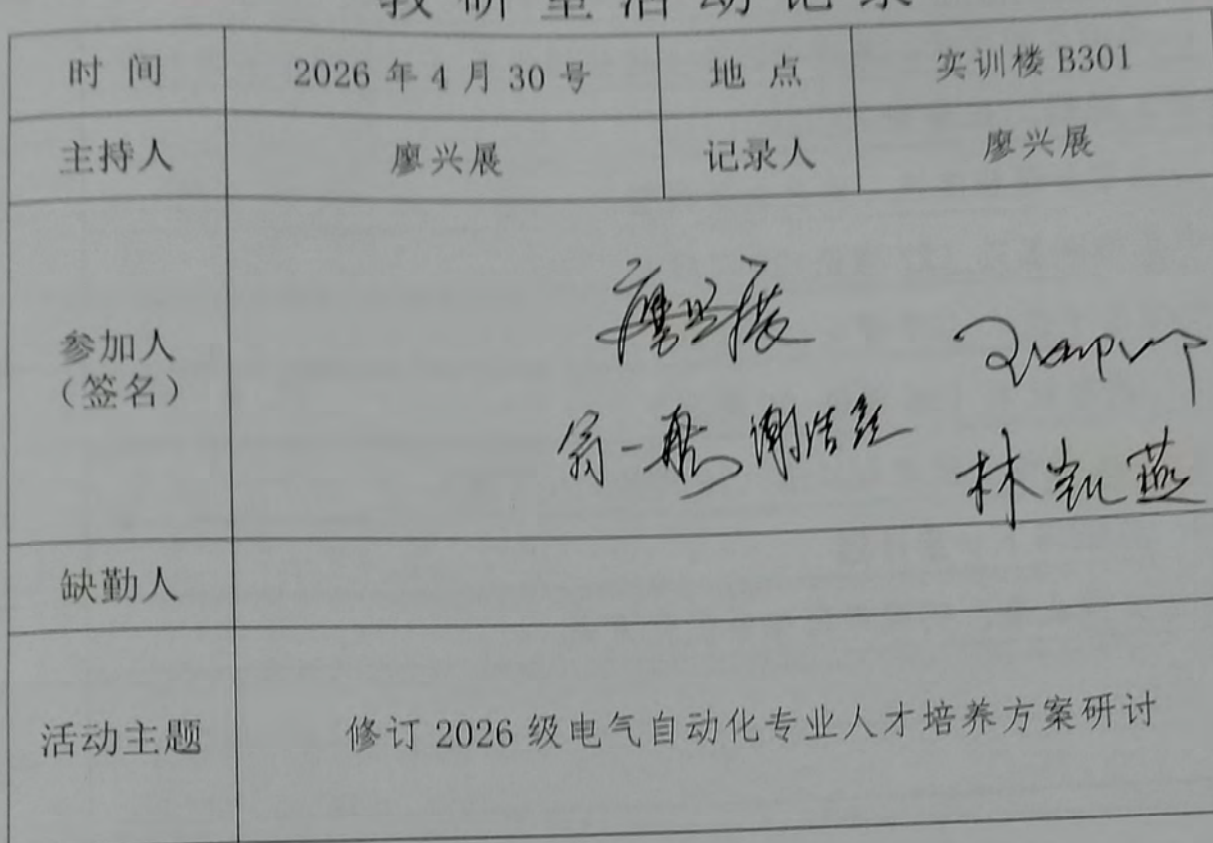 教研室活动记录
时间 2026年4月30号 地点 实训楼B301
主持人 廖兴展 记录人 廖兴展
参加人
(签名)
廖兴展
翁一彪 谢浩
林凯燕
缺勤人
活动主题 修订2026级电气自动化专业人才培养方案研讨